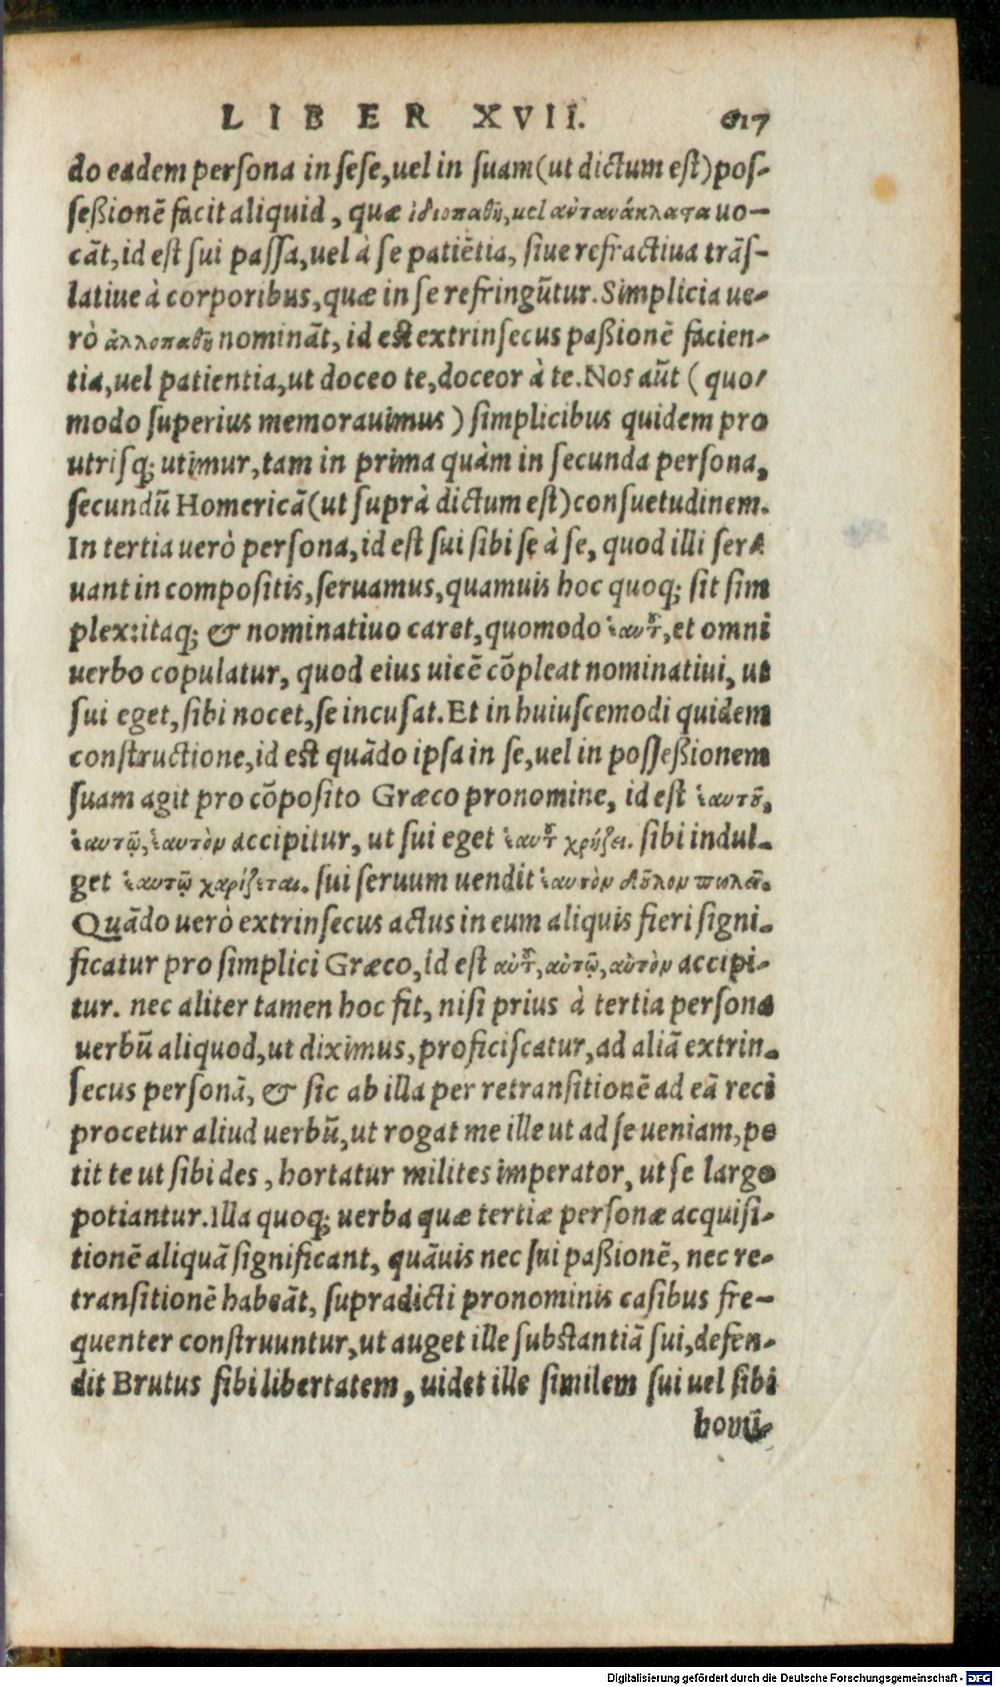 LIBER XVII. 617
do eadem persona in sese, uel in suam (ut dictum est) pos-
seßionē facit aliquid, quæ ἰδιοπαθῆ, uel αὐτανάκλαστα uo-
cāt, id est sui passa, uel à se patiētia, siue refractiua trās-
latiue à corporibus, quæ in se refringūtur. Simplicia ue-
rò ἀλλοπαθῆ nomināt, id est extrinsecus paßionē facien-
tia, uel patientia, ut doceo te, doceor à te. Nos aūt (quo-
modo superius memorauimus) simplicibus quidem pro
utrisq; utimur, tam in prima quàm in secunda persona,
secundū Homericā (ut suprà dictum est) consuetudinem.
In tertia uerò persona, id est sui sibi se à se, quod illi ser-
uant in compositis, seruamus, quamuis hoc quoq; sit sim
plex: itaq; & nominatiuo caret, quomodo ἑαυτοῦ, et omni
uerbo copulatur, quod eius uicē cōpleat nominatiui, ut
sui eget, sibi nocet, se incusat. Et in huiuscemodi quidem
constructione, id est quādo ipsa in se, uel in posseßionem
suam agit pro cōposito Græco pronomine, id est ἑαυτοῦ,
ἑαυτῷ, ἑαυτὸν accipitur, ut sui eget ἑαυτοῦ χρῄζει. sibi indul-
get ἑαυτῷ χαρίζεται. sui seruum uendit ἑαυτὸν δοῦλον πωλεῖ.
Quādo uerò extrinsecus actus in eum aliquis fieri signi-
ficatur pro simplici Græco, id est αὐτοῦ, αὐτῷ, αὐτὸν accipi-
tur. nec aliter tamen hoc fit, nisi prius à tertia persona
uerbū aliquod, ut diximus, proficiscatur, ad aliā extrin-
secus personā, & sic ab illa per retransitionē ad eā reci
procetur aliud uerbū, ut rogat me ille ut ad se ueniam, pe
tit te ut sibi des, hortatur milites imperator, ut se largo
potiantur. Illa quoq; uerba quæ tertiæ personæ acquisi-
tionē aliquā significant, quāuis nec sui paßionē, nec re-
transitionē habeāt, supradicti pronominis casibus fre-
quenter construuntur, ut auget ille substantiā sui, defen-
dit Brutus sibi libertatem, uidet ille similem sui uel sibi
homi-
Digitalisierung gefördert durch die Deutsche Forschungsgemeinschaft - DFG